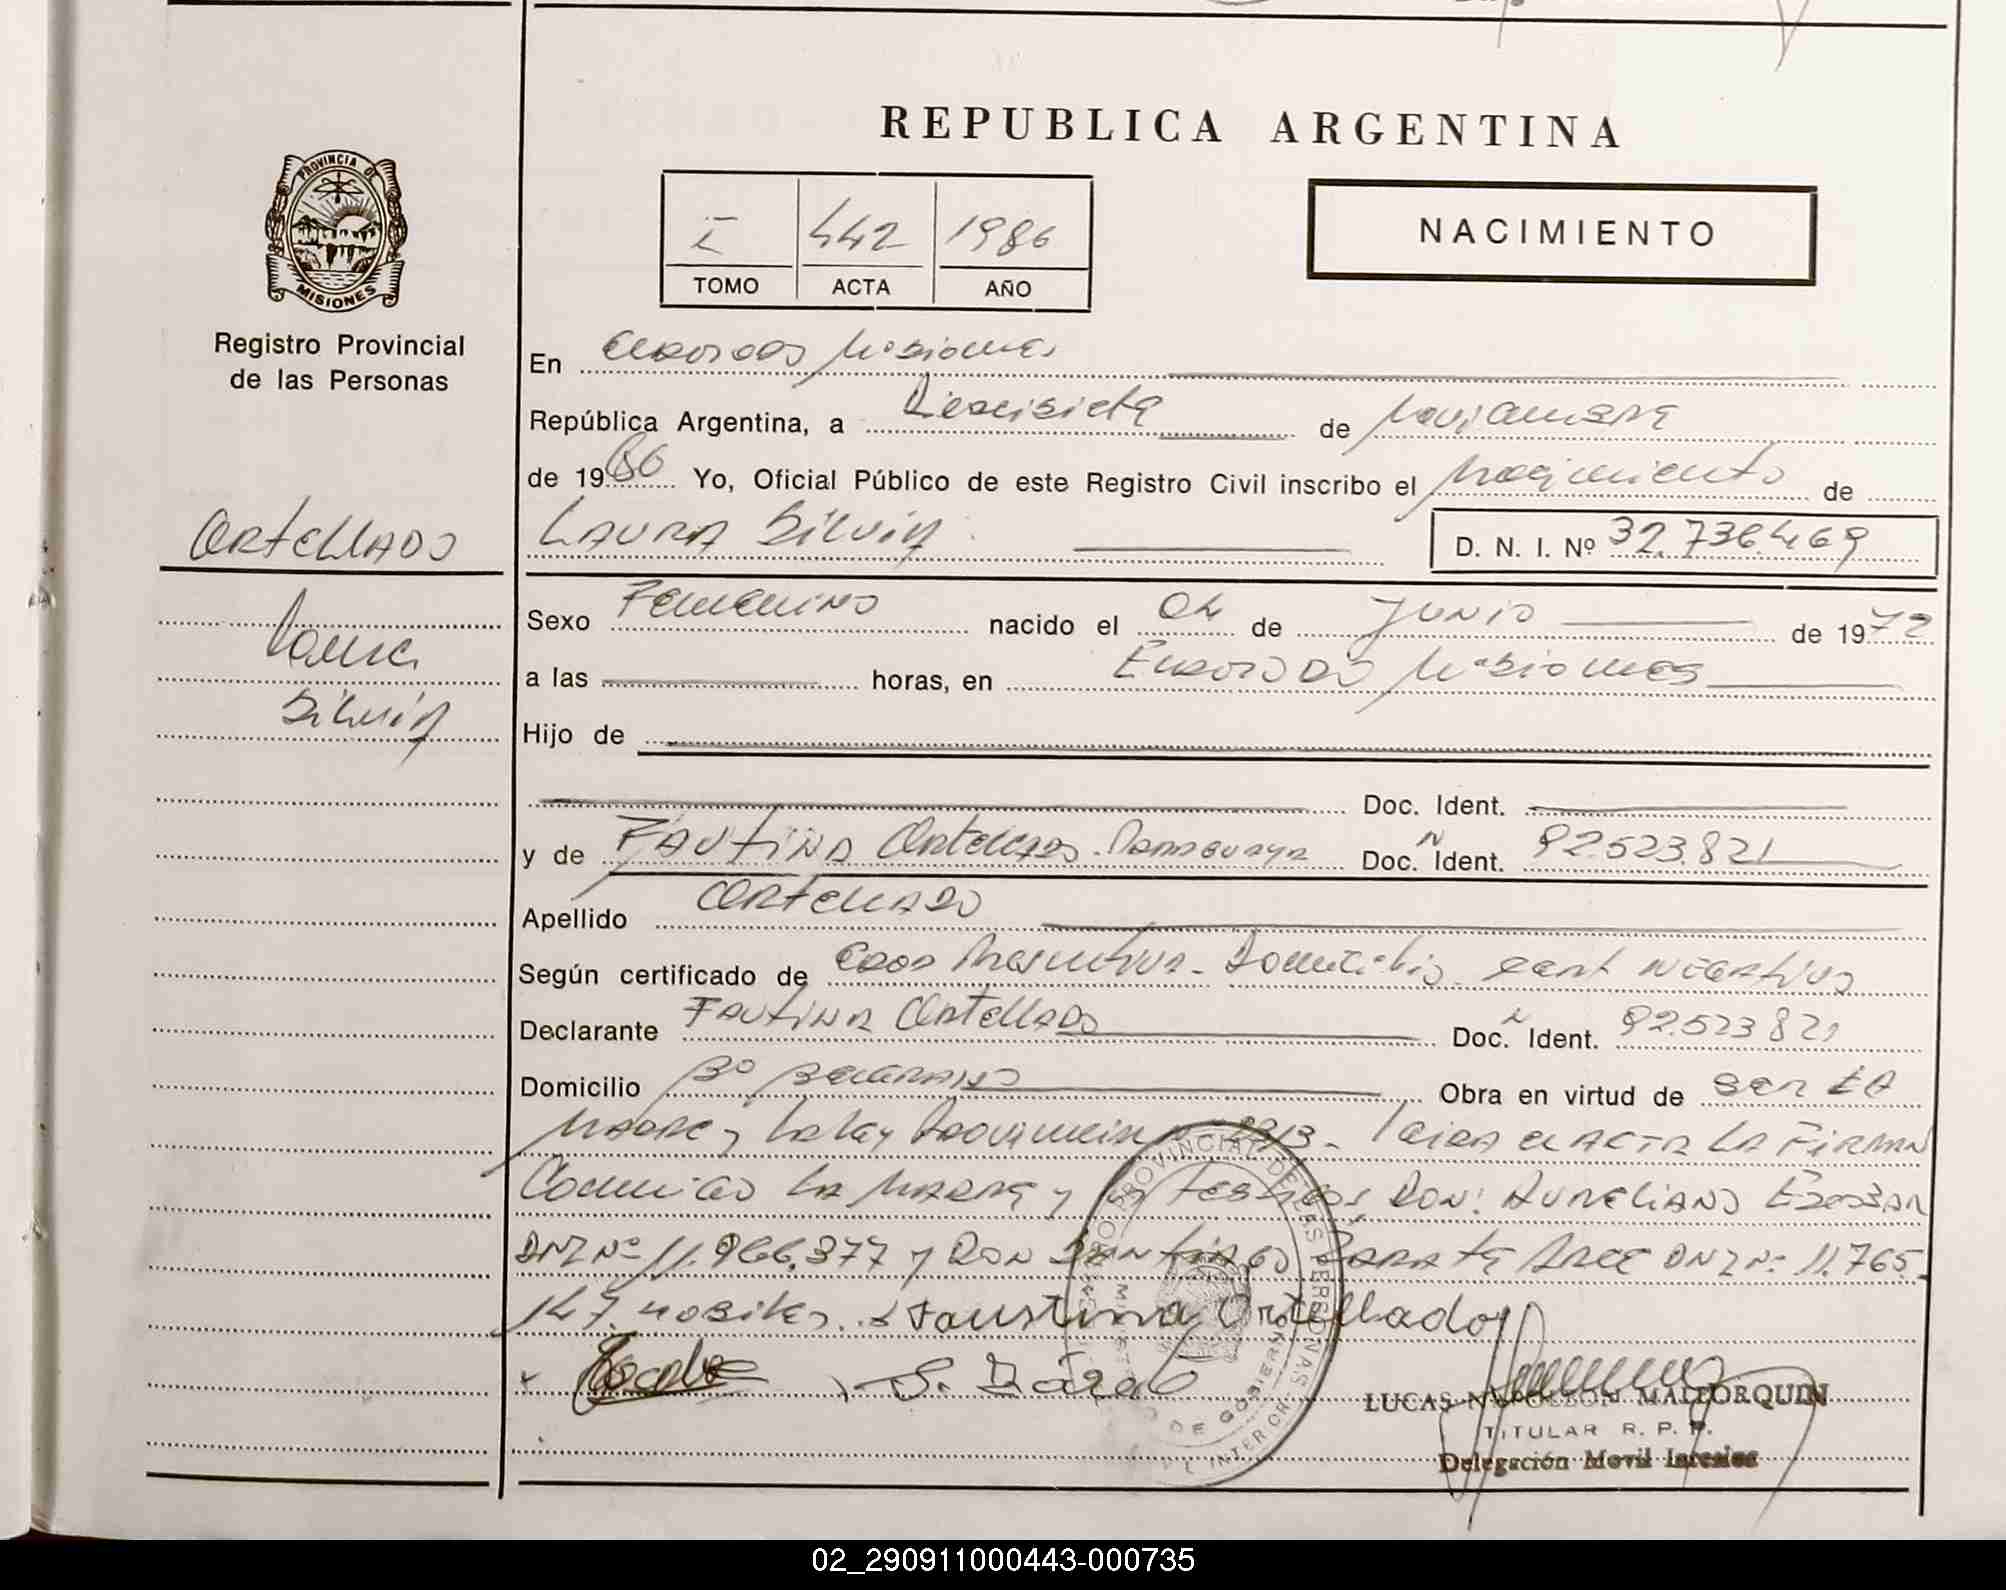 REPUBLICA ARGENTINA
PROVINCIA DE
MISIONES
Registro Provincial
de las Personas
I 442 1986
TOMO ACTA AÑO
NACIMIENTO
En Misiones
República Argentina, a Diecisiete de Noviembre
de 1986 Yo, Oficial Público de este Registro Civil inscribo el Nacimiento de
ORTELLADO
LAURA SILVIA D. N. I. Nº 32.736.469
Laura
Silvia
Sexo Femenino nacido el 04 de Junio de 1972
a las horas, en Misiones
Hijo de
Doc. Ident.
y de FAUTINA ORTELLADO. Paraguaya Doc. Ident. 92.523.821
Apellido ORTELLADO
Según certificado de Domicilio
Declarante FAUTINA ORTELLADO Doc. Ident. 92.523 821
Domicilio Bº BELGRANO Obra en virtud de SER LA
MADRE y LA FIRMAN
LA MADRE y testigos DON: AURELIANO
DNI Nº 11.966.377 y DON SANTIAGO ZARATE DNI Nº 11.765.
147. Faustina Ortellado
S. Zárate
REGISTRO PROVINCIAL DE LAS PERSONAS
DE GOBIERNO
INTERIOR
LUCAS NAPOLEON MALLORQUIN
TITULAR R. P. P.
Delegación Movil
02_290911000443-000735